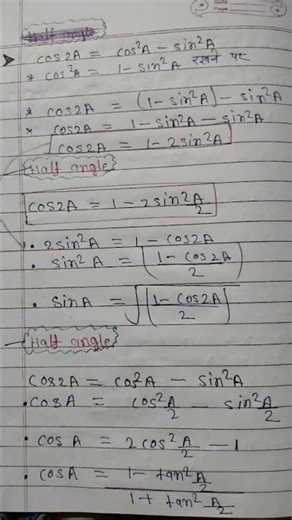 Half angle
cos2A = cos²A − sin²A
* cos²A = 1 − sin²A रखने पर
* cos2A = (1 − sin²A) − sin²A
* cos2A = 1 − sin²A − sin²A
cos2A = 1 − 2sin²A
Half angle
cos2A = 1 − 2sin²A/2
• 2sin²A = 1 − cos2A
• sin²A = (1 − cos2A / 2)
• sinA = √(1 − cos2A / 2)
Half angle
cos2A = cos²A − sin²A
• cosA = cos²A/2 − sin²A/2
• cosA = 2cos²A/2 − 1
• cosA = 1 − tan²A/2 / 1 + tan²A/2